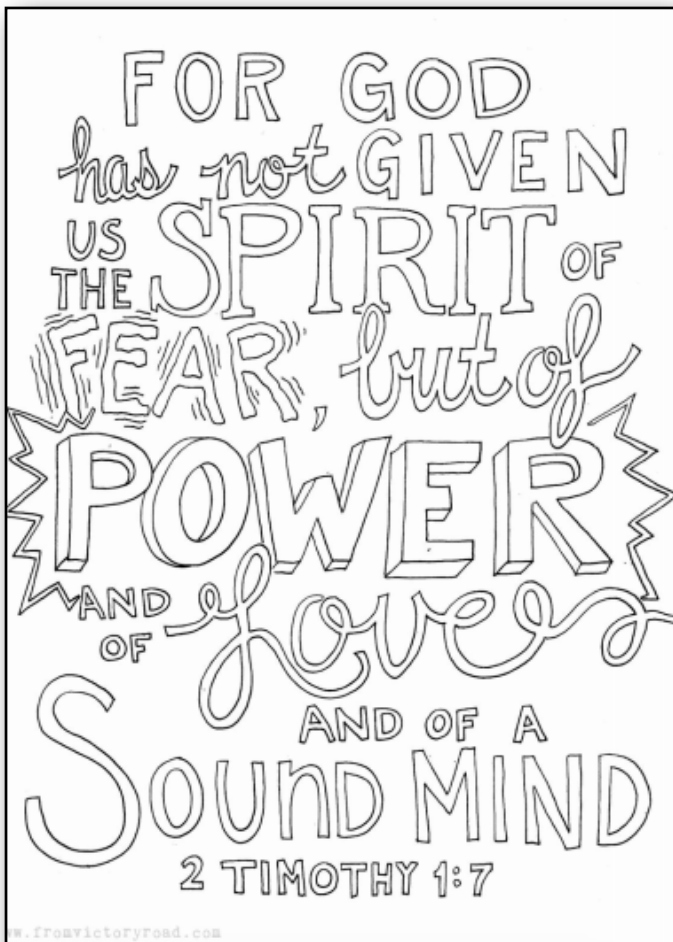 FOR GOD
has not GIVEN
US THE SPIRIT OF
FEAR, but of
POWER
AND OF Love
AND OF A
SOUnD MIND
2 TIMOTHY 1:7
w.fromvictoryroad.com